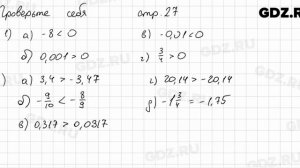 Проверьте себя стр. 27
GDZ.RU
1) а) -8 < 0 в) -0,01 < 0
б) 0,001 > 0 г) 3/4 > 0
) а) 3,4 > -3,47 г) 20,14 > -20,14
б) -9/10 < -8/9 д) -1 3/4 = -1,75
в) 0,317 > 0,0317
GDZ.RU